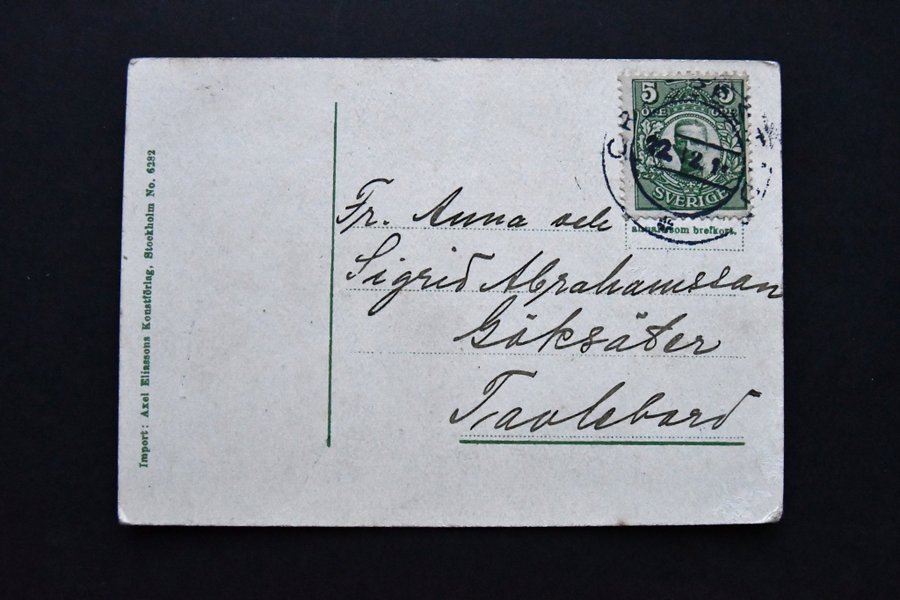 Import: Axel Eliassons Konstförlag, Stockholm No. 6282
5 5
ÖRE
SVERIGE
22 12 1
som brefkort.
Fr. Anna och
Sigrid Abrahamsson
Göksäter